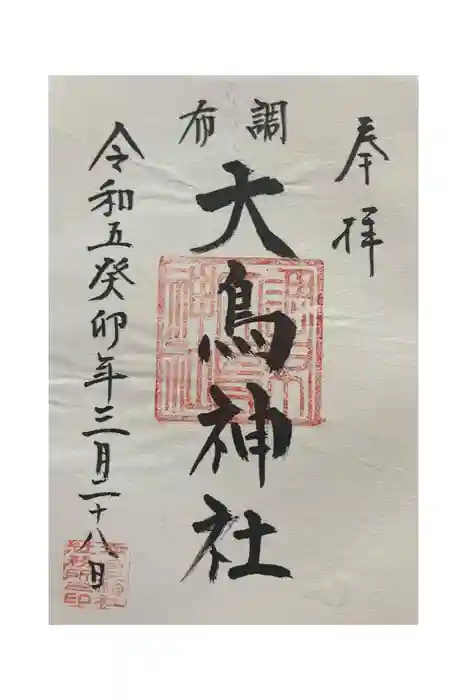 奉拝
調布
大鳥神社
令和五癸卯年三月二十八日